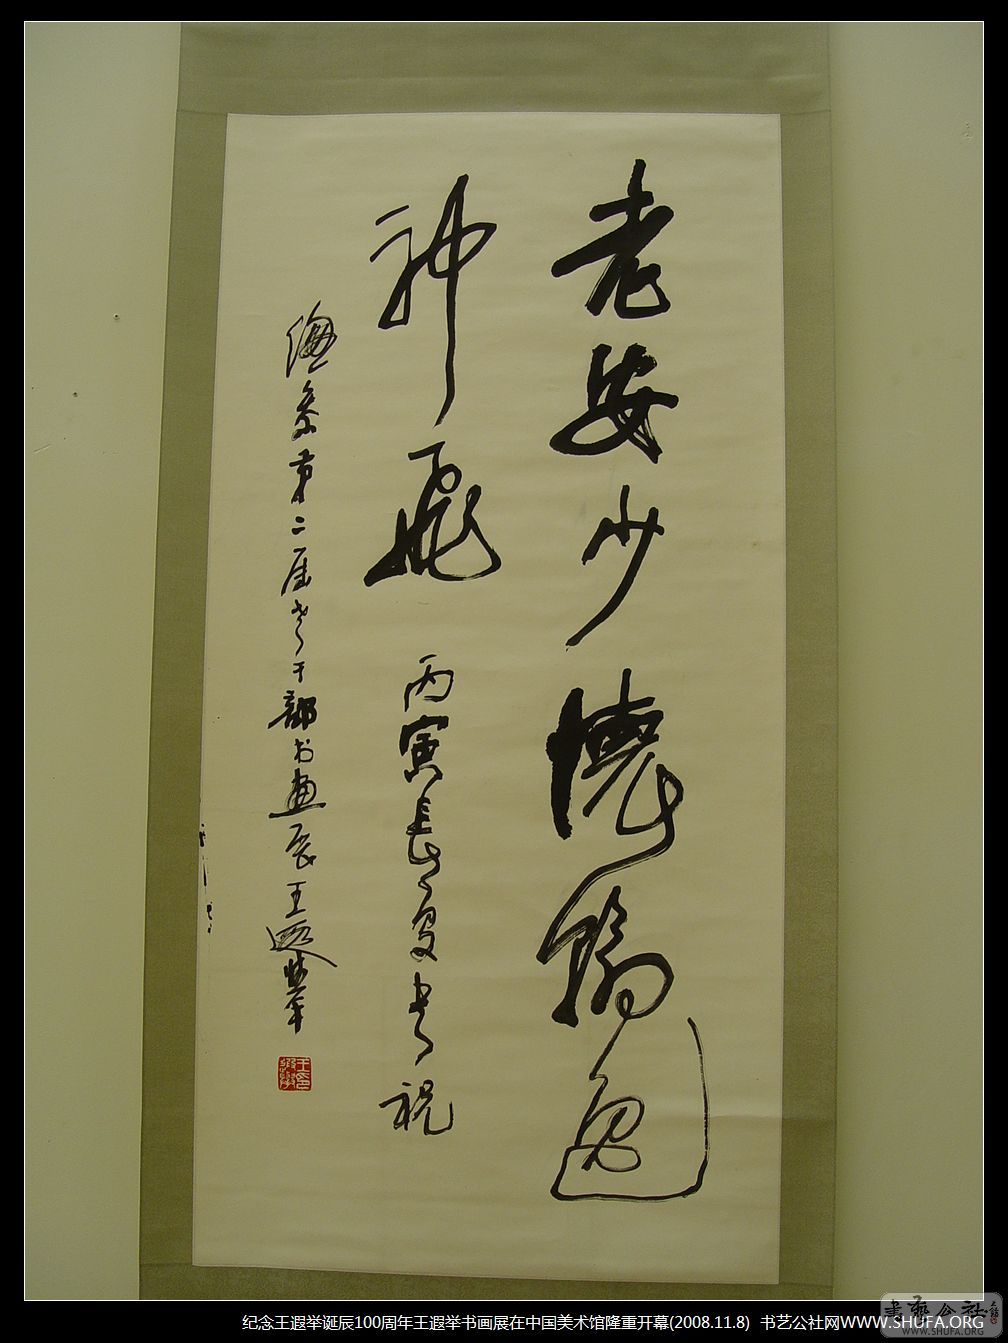 老安少懷翰逸
神飛 丙寅長夏书祝
第二届老干部书画展王遐举
纪念王遐举诞辰100周年王遐举书画展在中国美术馆隆重开幕(2008.11.8) 书艺公社网WWW.SHUFA.ORG
書藝公社
WWW.SHUFA.ORG